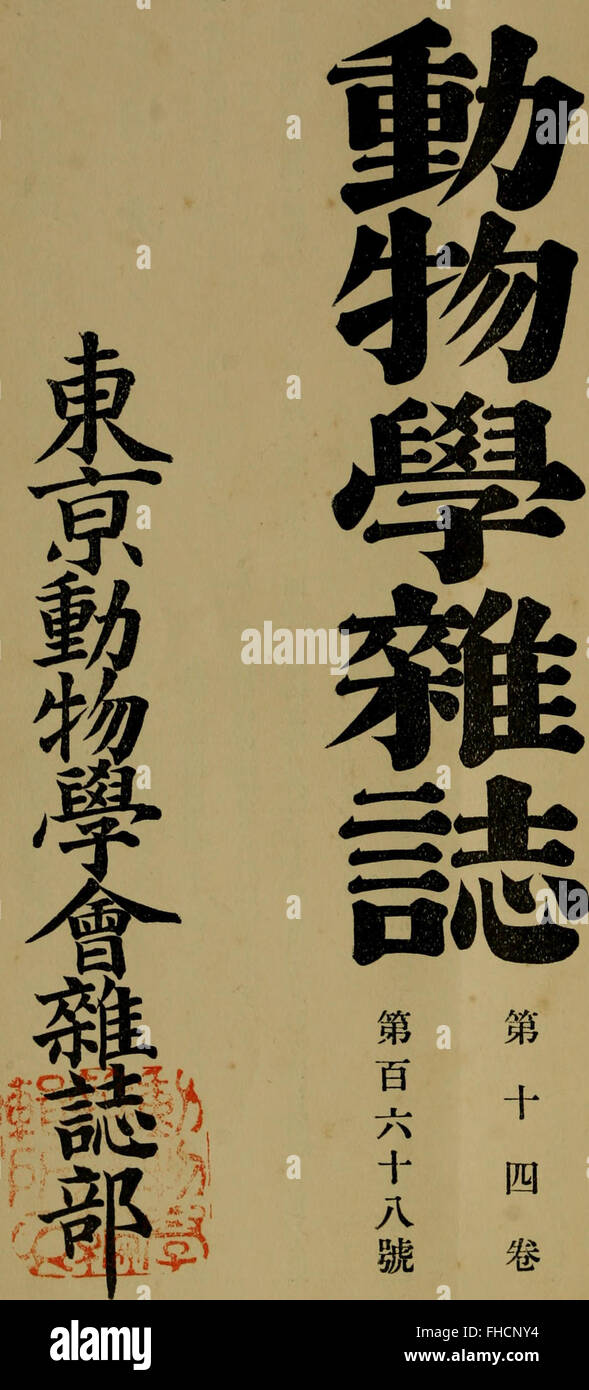 動物學雜誌
第十四卷
第百六十八號
東京動物學會雜誌部
alamy stock photo
a
alamy
Image ID: FHCNY4
www.alamy.com